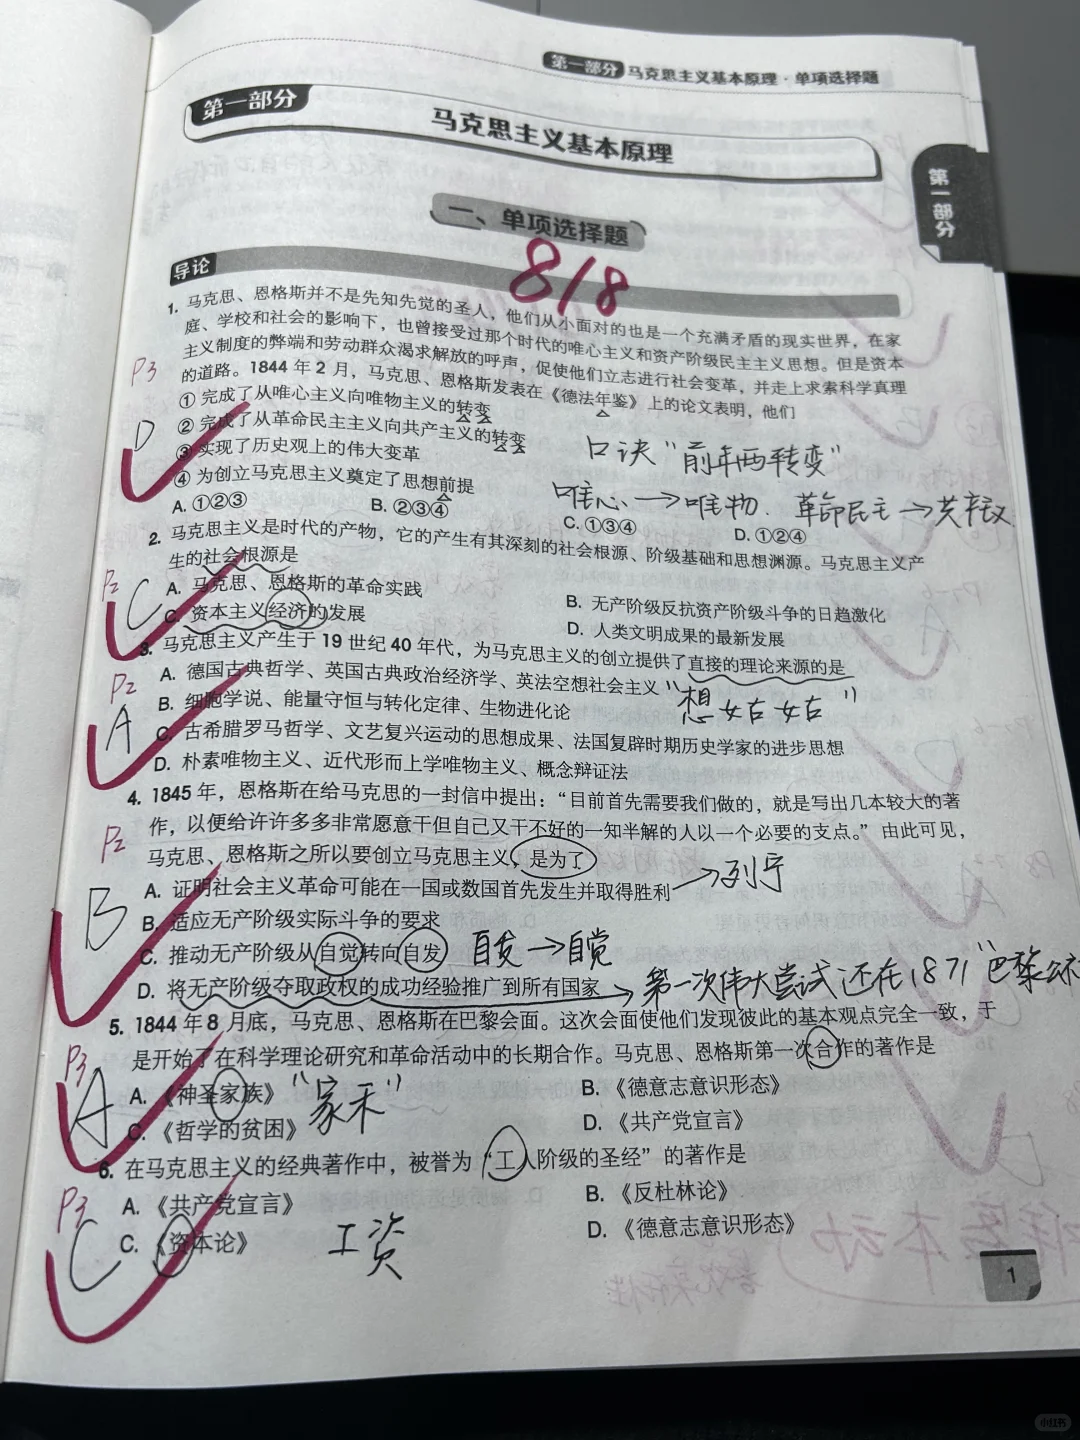 第一部分 马克思主义基本原理·单项选择题
第一部分
马克思主义基本原理
第一部分
一、单项选择题
8/8
导论
1. 马克思、恩格斯并不是先知先觉的圣人，他们从小面对的也是一个充满矛盾的现实世界，在家
庭、学校和社会的影响下，也曾接受过那个时代的唯心主义和资产阶级民主主义思想。但是资本
主义制度的弊端和劳动群众渴求解放的呼声，促使他们立志进行社会变革，并走上求索科学真理
的道路。1844 年 2 月，马克思、恩格斯发表在《德法年鉴》上的论文表明，他们
P3
① 完成了从唯心主义向唯物主义的转变
② 完成了从革命民主主义向共产主义的转变
D
③ 实现了历史观上的伟大变革
口诀“前年两转变”
④ 为创立马克思主义奠定了思想前提
唯心→唯物. 革命民主→共产主义
A. ①②③ B. ②③④ C. ①③④ D. ①②④
2. 马克思主义是时代的产物，它的产生有其深刻的社会根源、阶级基础和思想渊源。马克思主义产
生的社会根源是
P2
C
A. 马克思、恩格斯的革命实践 B. 无产阶级反抗资产阶级斗争的日趋激化
C. 资本主义经济的发展 D. 人类文明成果的最新发展
3. 马克思主义产生于 19 世纪 40 年代，为马克思主义的创立提供了直接的理论来源的是
P2
A. 德国古典哲学、英国古典政治经济学、英法空想社会主义 “想古古”
B. 细胞学说、能量守恒与转化定律、生物进化论
A
C. 古希腊罗马哲学、文艺复兴运动的思想成果、法国复辟时期历史学家的进步思想
D. 朴素唯物主义、近代形而上学唯物主义、概念辩证法
4. 1845 年，恩格斯在给马克思的一封信中提出：“目前首先需要我们做的，就是写出几本较大的著
作，以便给许许多多非常愿意干但自己又干不好的一知半解的人以一个必要的支点。”由此可见，
P2
马克思、恩格斯之所以要创立马克思主义，是为了
A. 证明社会主义革命可能在一国或数国首先发生并取得胜利 →列宁
B
B. 适应无产阶级实际斗争的要求
C. 推动无产阶级从自觉转向自发 自发→自觉
D. 将无产阶级夺取政权的成功经验推广到所有国家 →第一次伟大尝试还在1871“巴黎公
5. 1844 年 8 月底，马克思、恩格斯在巴黎会面。这次会面使他们发现彼此的基本观点完全一致，于
是开始了在科学理论研究和革命活动中的长期合作。马克思、恩格斯第一次合作的著作是
P3
A
A. 《神圣家族》 “家禾” B. 《德意志意识形态》
C. 《哲学的贫困》 D. 《共产党宣言》
6. 在马克思主义的经典著作中，被誉为“工人阶级的圣经”的著作是
P3
A. 《共产党宣言》 B. 《反杜林论》
C
C. 《资本论》 工资 D. 《德意志意识形态》
1
小红书